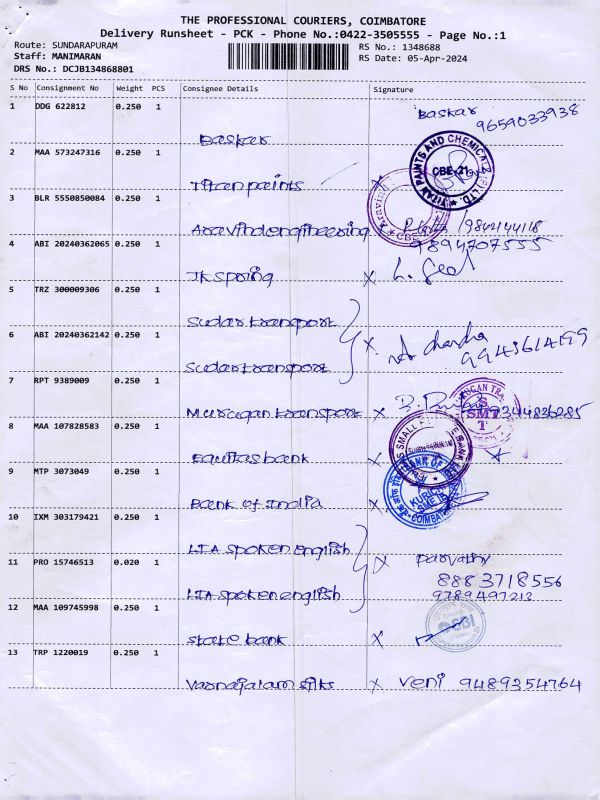 THE PROFESSIONAL COURIERS, COIMBATORE
Delivery Runsheet - PCK - Phone No.:0422-3505555 - Page No.:1
Route: SUNDARAPURAM
RS No.: 1348688
Staff: MANIMARAN
RS Date: 05-Apr-2024
DRS No.: DCJB134868801
S No Consignment No Weight PCS Consignee Details Signature
1 DDG 622812 0.250 1 Baskar Baskar
9659033938
2 MAA 573247316 0.250 1 Titan paints X
TITAN PAINTS AND CHEMICALZ (P) LTD.
CBE-21
3 BLR 5550850084 0.250 1 Aravind engineering
9894707555
4 ABI 20240362065 0.250 1 JK spring X
5 TRZ 300009306 0.250 1 Sudar transport
6 ABI 20240362142 0.250 1 Sudar transport X
7 RPT 9389009 0.250 1 Murugan transport X
SMT
8 MAA 107828583 0.250 1 Equitas bank
9 MTP 3073049 0.250 1 Bank of India X
10 IXM 303179421 0.250 1 LIA spoken english
11 PRO 15746513 0.020 1 LIA spoken english X Parvathy
8883718556
9789497213
12 MAA 109745998 0.250 1 State bank X
SBI
13 TRP 1220019 0.250 1 X Veni 9489354764